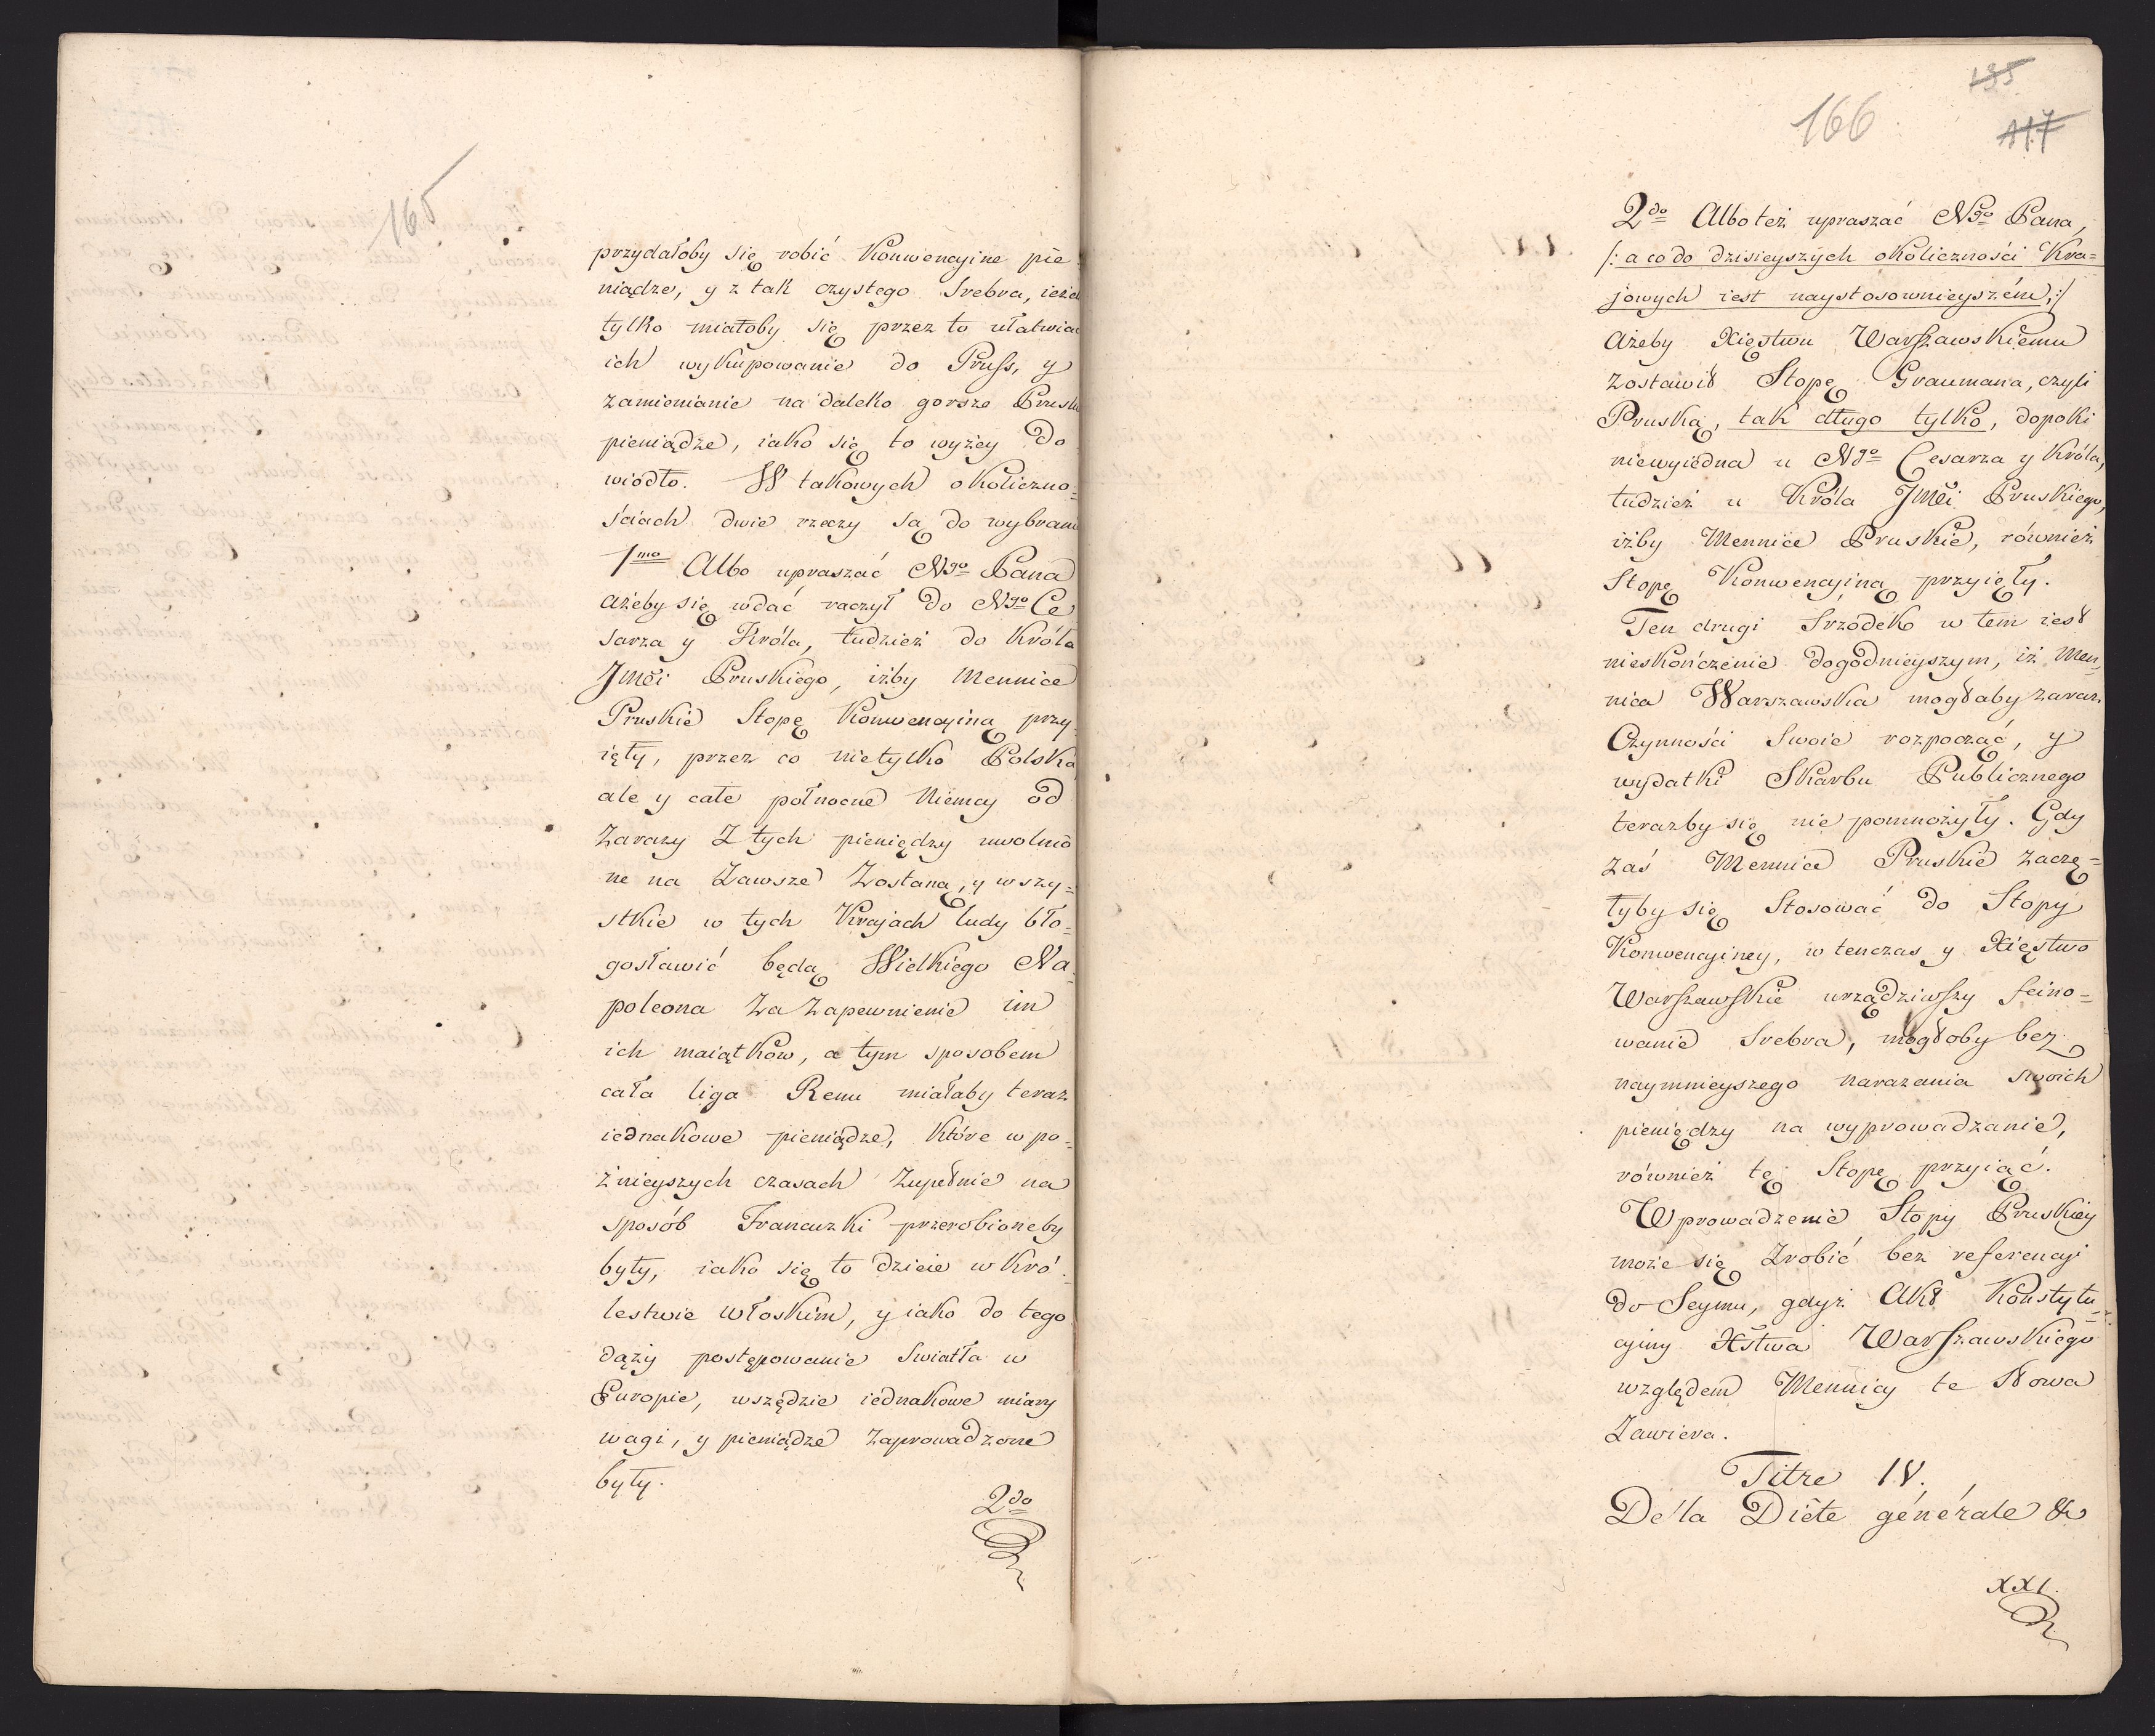 165
przydałoby się robić Konwencyine pie-
niądze, y z tak czystego Srebra, ieżel
tylko miałoby się przez to ułatwiać
ich wykupowanie do Pruss, y
zamienianie na daleko gorsze Prusk
pieniądze, iako się to wyżey do
wiodło. W takowych okoliczno-
ściach dwie rzeczy są do wybrani
1mo Albo upraszać Ngo Pana
ażeby się wdać raczył do Ngo Ce
sarza y Króla, tudzież do Króla
Jmći Pruskiego, iżby Mennice
Pruskie Stopę Konwencyiną przy-
ięły, przez co nietylko Polska
ale y całe połnocne Niemcy od
Zarazy Z tych pieniędzy uwolnio
ne na Zawsze Zostaną, y wszy=
stkie w tych Krajach ludy bło-
gosławić będą Wielkiego Na-
poleona Za Zapewnienie im
ich maiątkow, a tym sposobem
cała liga Renu miałaby teraz
iednakowe pieniądze, które w po-
źnieyszych czasach Zupełnie na
sposób Francuzki przerobioneby
były, iako się to dzieie w Kró-
lestwie Włoskim, y iako do tego
dąży postępowanie Swiatła w
Europie, wszędzie iednakowe miary
wagi, y pieniądze Zaprowadzone
były.
2do
135
166
117
2do Albo też upraszać Ngo Pana,
/: a co do dzisieyszych okoliczności Kra=
jowych iest naystosownieyszém :/
Ażeby Xięstwu Warszawskiemu
zostawił Stopę Graumana, czyli
Pruską, tak długo tylko, dopoki
niewyiedna u Ngo Cesarza y Króla,
tudzież u Króla Jmći Pruskiego,
iżby Mennice Pruskie, również
Stopę Konwencyiną przyięły.
Ten drugi Srzodek w tem iest
nieskończenie dogodnieyszym, iż Men-
nica Warszawska mogłaby zaraz
Czynności Swoie rozpocząć, y
wydatki Skarbu Publicznego
terazby się nie pomnożyły. Gdy
zaś Mennice Pruskie zaczę=
łyby się Stosować do Stopy
Konwencyiney, w tenczas y Xięstwo
Warszawskie urządziwszy feino=
wanie Srebra, mogłoby bez
naymnieyszego narażania swoich
pieniędzy na wyprowadzanie,
również tę Stopę przyiąć.
Wprowadzenie Stopy Pruskiey
może się Zrobić bez referencyi
do Seymu, gdyż Akt Konstytu-
cyiny Xstwa Warszawskiego
względem Mennicy te Słowa
Zawiera.
Titre IV.
De la Diète générale &
XXI.